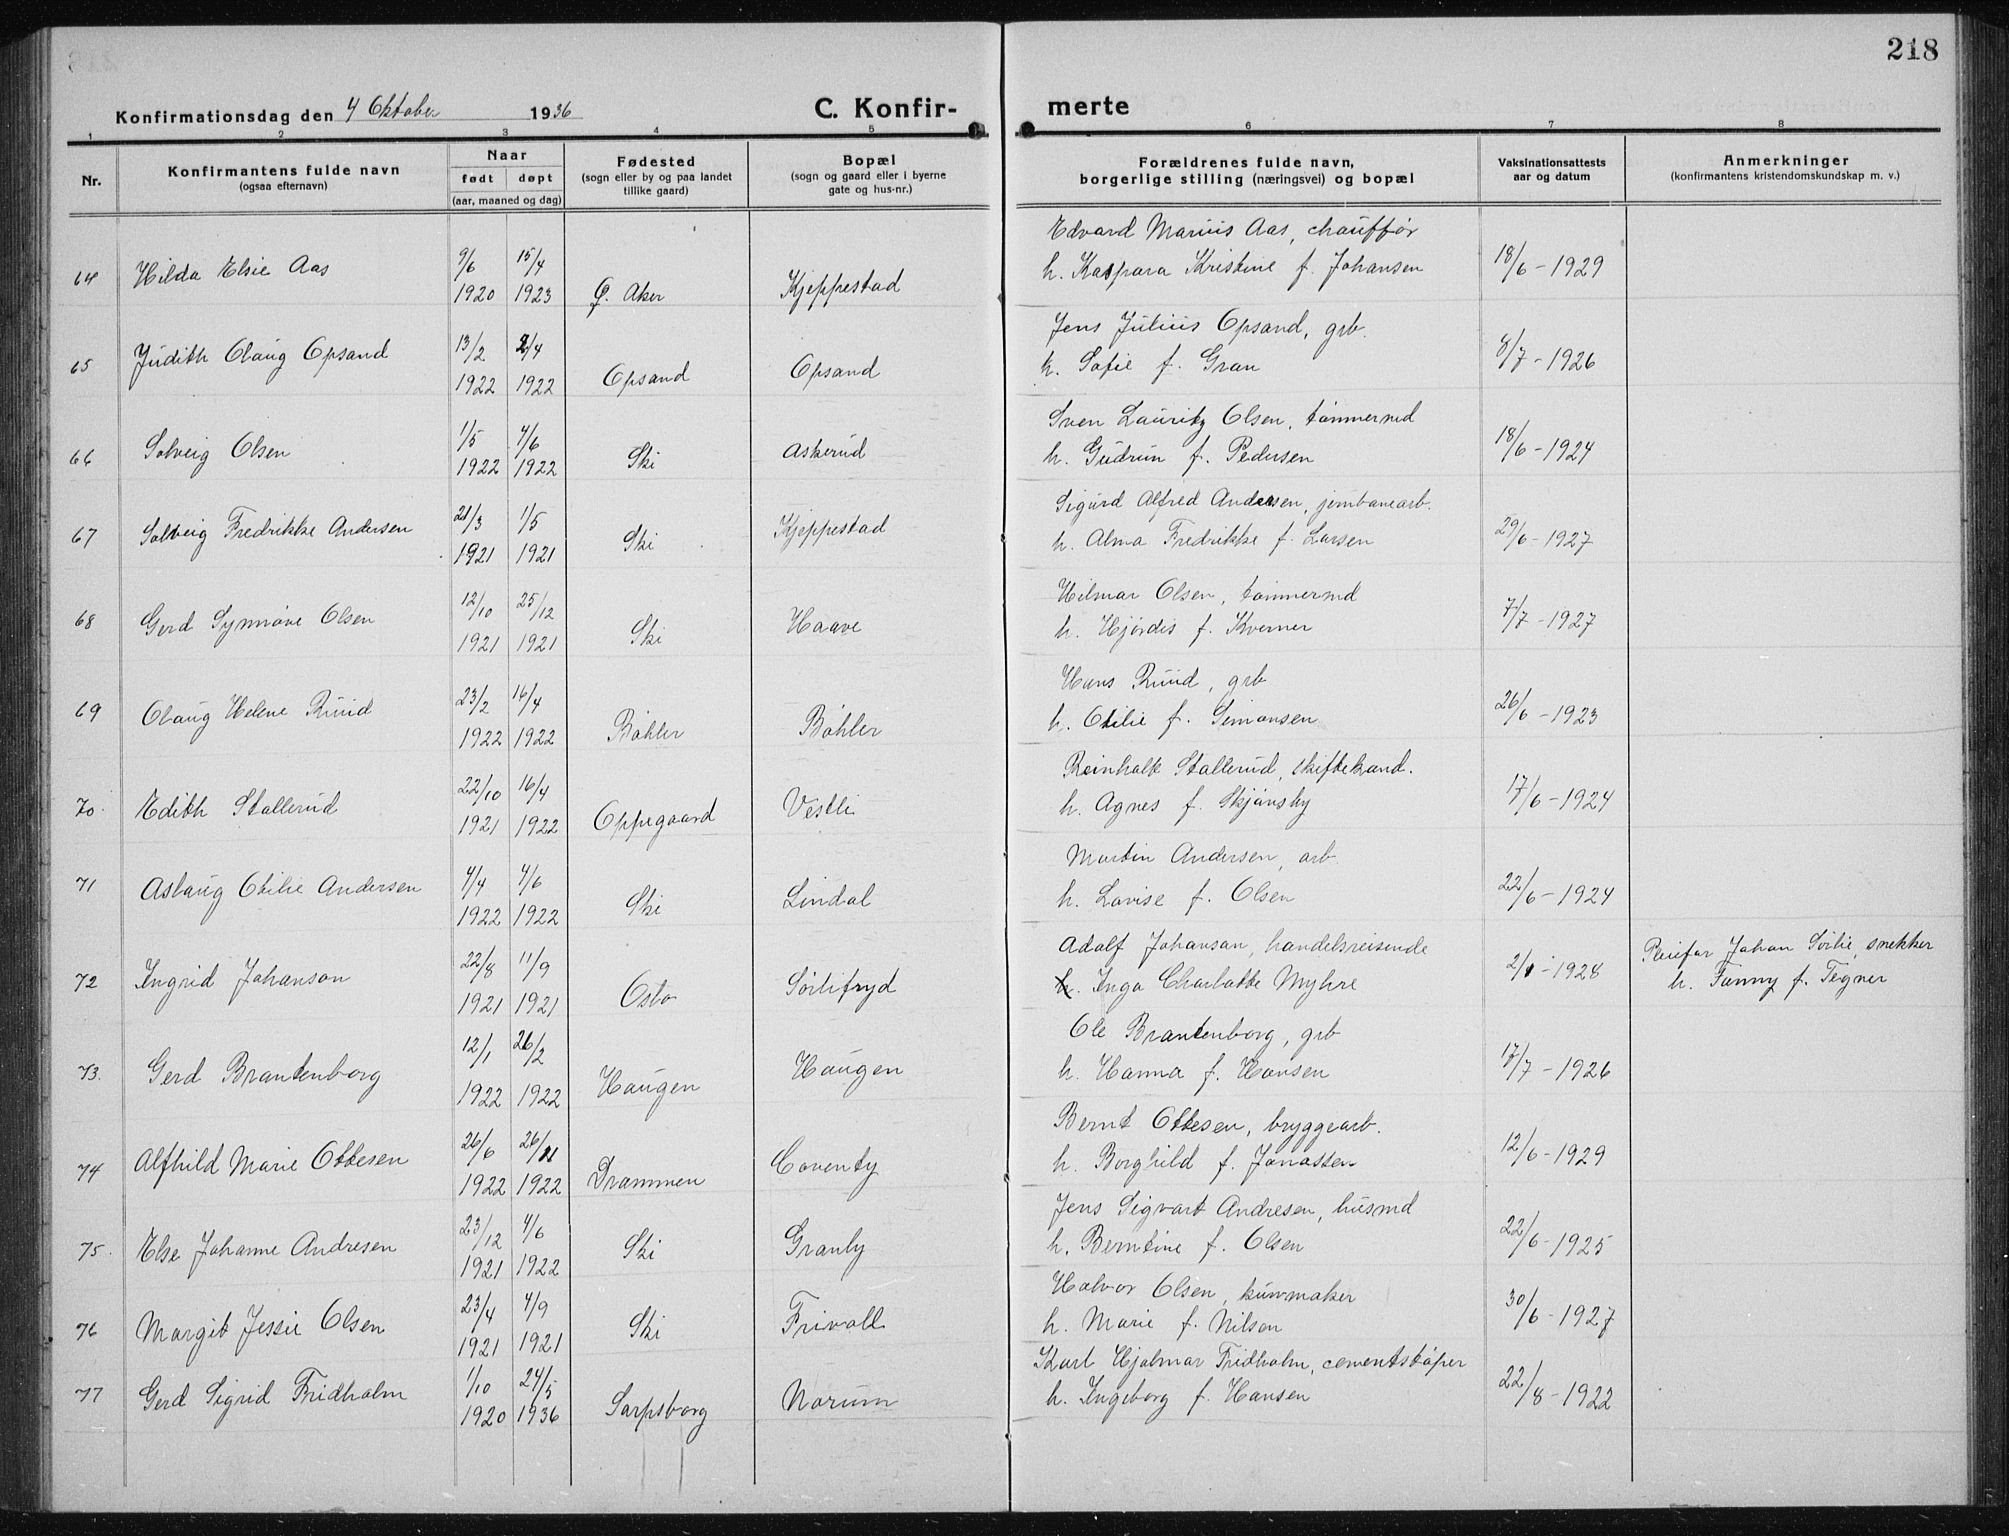 218
Konfirmationsdag den 4 Oktober 1936
C. Konfirmerte
1 2 3 4 5 6 7 8
Nr.
Konfirmantens fulde navn
(ogsaa efternavn)
Naar
født døpt
(aar, maaned og dag)
Fødested
(sogn eller by og paa landet
tillike gaard)
Bopæl
(sogn og gaard eller i byerne
gate og hus-nr.)
Forældrenes fulde navn,
borgerlige stilling (næringsvei) og bopæl
Vaksinationsattests
aar og datum
Anmerkninger
(konfirmantens kristendomskundskap m. v.)
64 Hilda Elsie Aas 9/6 1920 15/4 1923 Ø. Aker Kjeppestad
Edvard Marius Aas, chauffør
h. Kaspara Kristine f. Johansen 18/6 - 1929
65 Judith Olaug Opsand 13/2 1922 2/4 1922 Opsand Opsand
Jens Julius Opsand, grb.
h. Sofie f. Gran 8/7 - 1926
66 Solveig Olsen 1/5 1922 4/6 1922 Ski Askerud
Sven Lauritz Olsen, tømmermd
h. Gudrun f. Pedersen 18/6 - 1924
67 Solveig Fredrikke Andersen 21/3 1921 1/5 1921 Ski Kjeppestad
Sigurd Alfred Andersen, jernbanearb.
h. Alma Fredrikke f. Larsen 29/6 - 1927
68 Gerd Synnøve Olsen 12/10 1921 25/12 1921 Ski Haave
Hilmar Olsen, tømmermd
h. Hjørdis f. Kverner 7/7 - 1927
69 Olaug Helene Ruud 23/2 1922 16/4 1922 Bøhler Bøhler
Hans Ruud, grb
h. Otilie f. Simonsen 26/6 - 1923
70. Edith Stallerud 22/10 1921 16/4 1922 Oppegaard Vestli
Reinhalt Stallerud, skiftekand.
h. Agnes f. Skjønsby 17/6 - 1924
71 Aslaug Otilie Andersen 4/4 1922 4/6 1922 Ski Lindal
Martin Andersen, arb.
h. Lovise f. Olsen 22/6 - 1924
72 Ingrid Johanson 22/8 1921 11/9 1921 Oslo Sørlifryd
Adolf Johansan, handelsreisende
h. Inga Charlotte Myhre 2/1 - 1928
Pleiefar Johan Sørlie, snekker
h. Fanny f. Tegner
73. Gerd Brantenborg 12/1 1922 26/2 1922 Haugen Haugen
Ole Brantenborg, grb
h. Hanna f. Hansen 17/7 - 1926
74 Alfhild Marie Ottesen 26/6 1922 26/11 1922 Drammen Coventy
Bernt Ottesen, bryggearb.
h. Borghild f. Jonassen 12/6 - 1929
75. Else Johanne Andresen 23/12 1921 4/6 1922 Ski Granly
Jens Sigvart Andresen, husmd
h. Berntine f. Olsen 22/6 - 1925
76 Margit Jessie Olsen 23/4 1921 4/9 1921 Ski Frivoll
Halvor Olsen, kurvmaker
h. Marie f. Nilsen 30/6 - 1927
77 Gerd Sigrid Fridholm 1/10 1920 24/5 1936 Sarpsborg Norum
Karl Hjalmar Fridholm, cementstøper
h. Ingeborg f. Hansen 22/8 - 1922